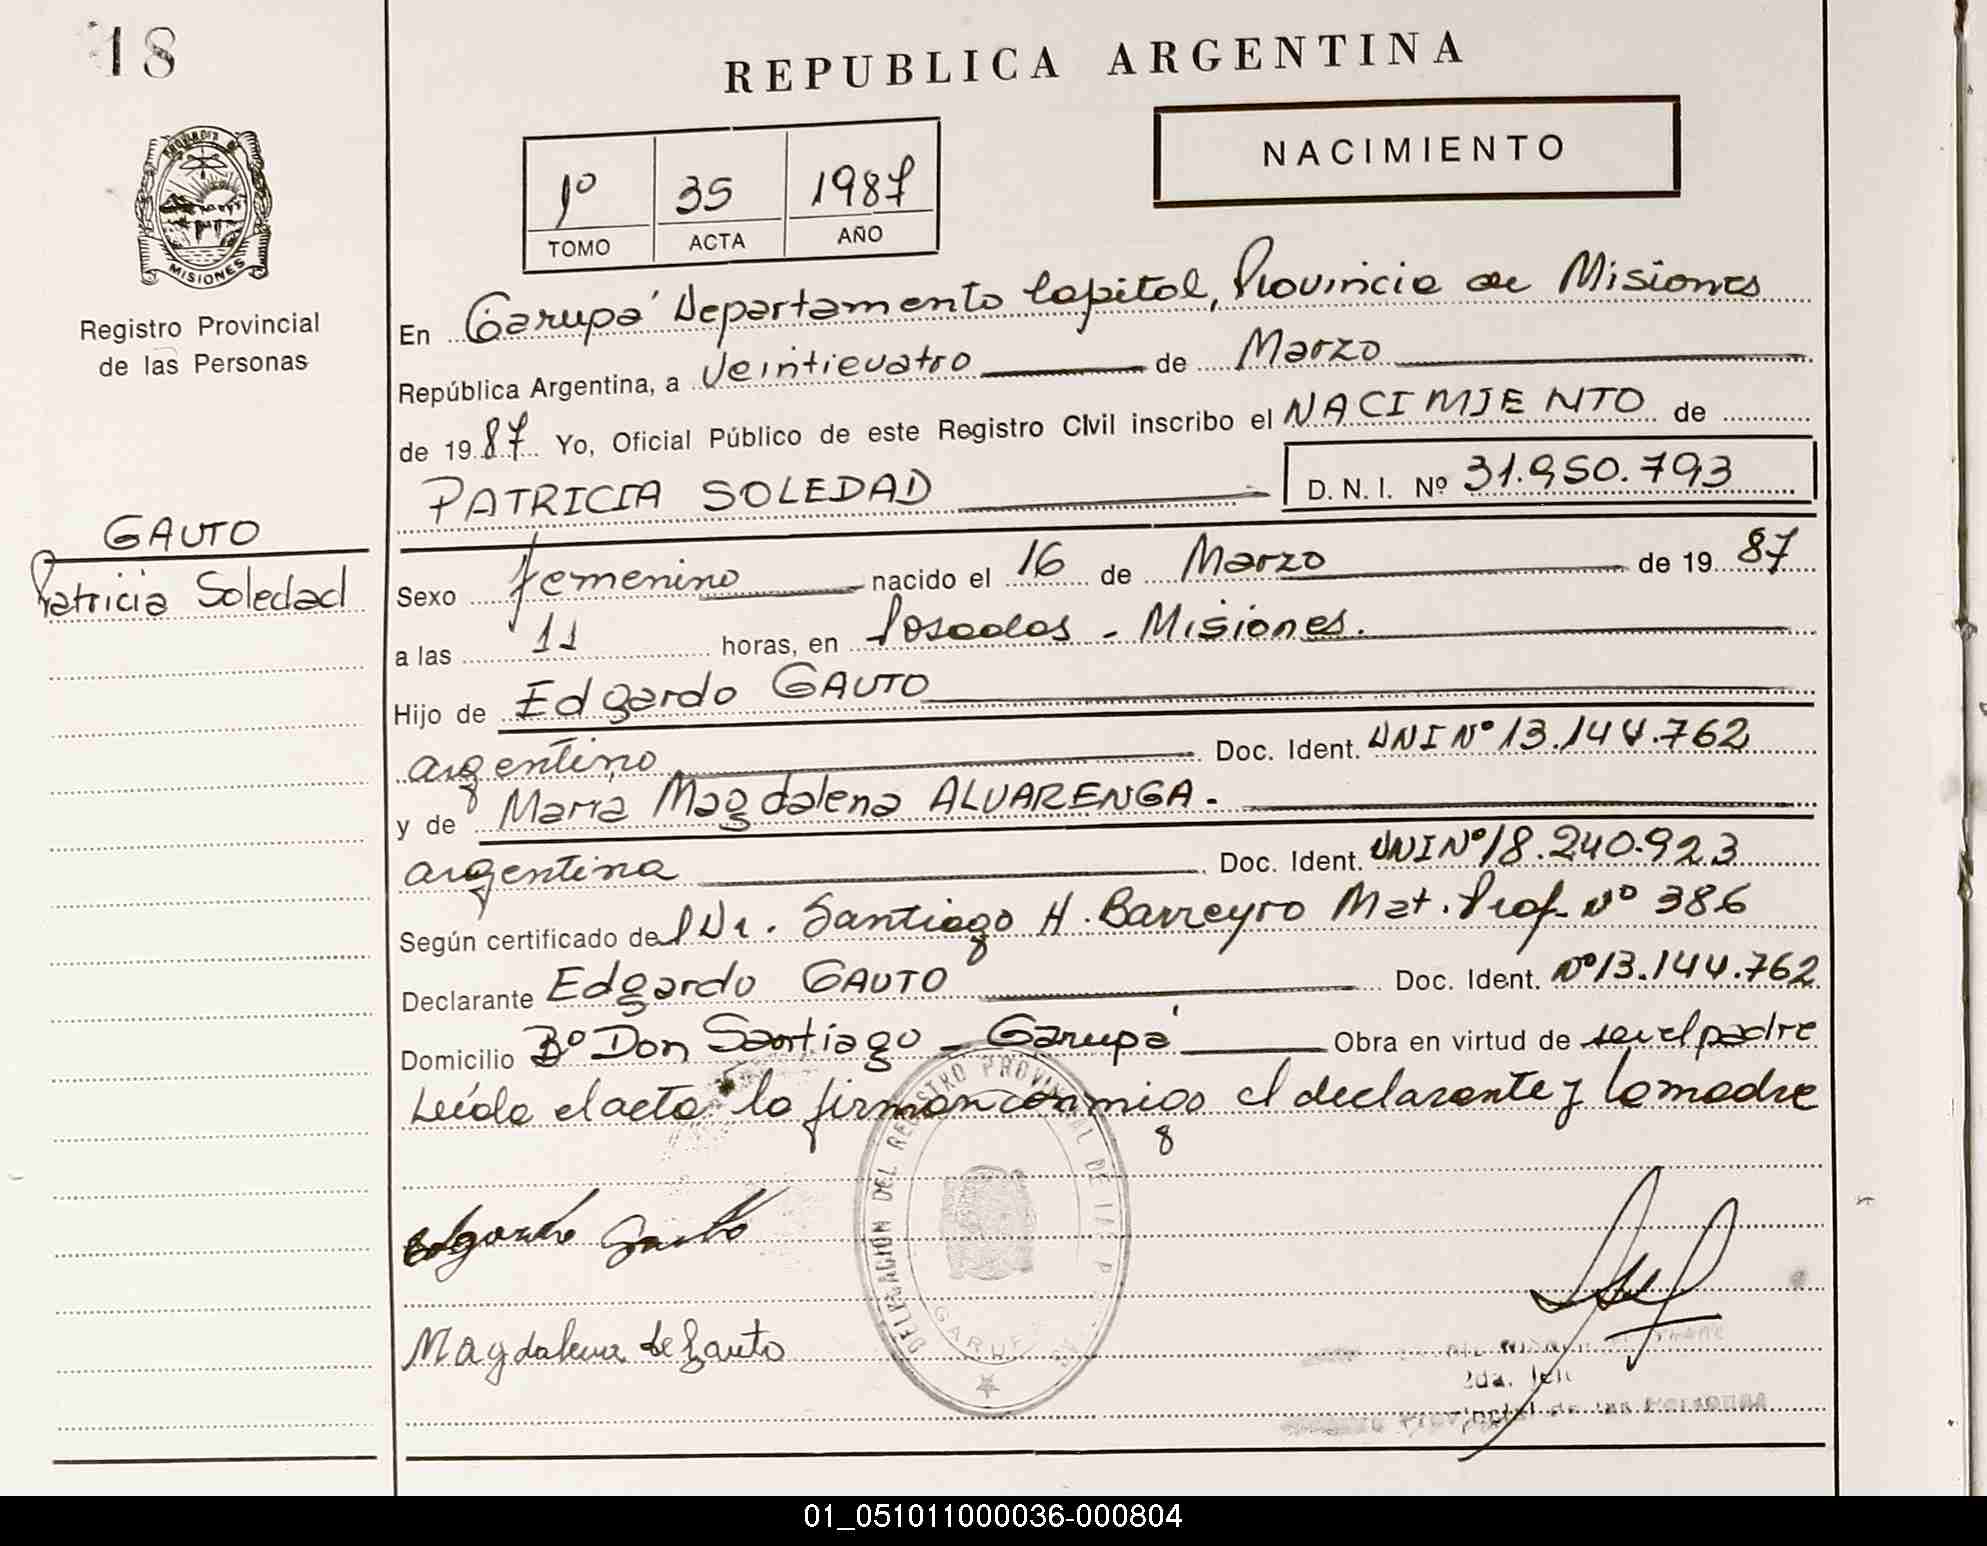 18
REPUBLICA ARGENTINA
NACIMIENTO
1º 35 1987
TOMO ACTA AÑO
MISIONES
Registro Provincial
de las Personas
GAUTO
Patricia Soledad
En Garupá Departamento Capital, Provincia de Misiones
República Argentina, a Veinticuatro de Marzo
de 1987 Yo, Oficial Público de este Registro Civil inscribo el NACIMIENTO de
PATRICIA SOLEDAD D. N. I. Nº 31.950.793
Sexo femenino nacido el 16 de Marzo de 1987
a las 11 horas, en Posadas - Misiones.
Hijo de Edgardo GAUTO
argentino Doc. Ident. DNI Nº 13.144.762
y de María Magdalena ALVARENGA.
argentina Doc. Ident. DNI Nº 18.240.923
Según certificado del Dr. Santiago H. Barreyro Mat. Prof. Nº 386
Declarante Edgardo GAUTO Doc. Ident. Nº 13.144.762
Domicilio Bº Don Santiago - Garupá Obra en virtud de ser el padre
Leída el acta la firman conmigo el declarante y la madre
DELEGACION DEL REGISTRO PROVINCIAL DE LAS P
Edgardo Gauto
Magdalena de Gauto
2da. Jefe
Provincial de las Personas
01_051011000036-000804